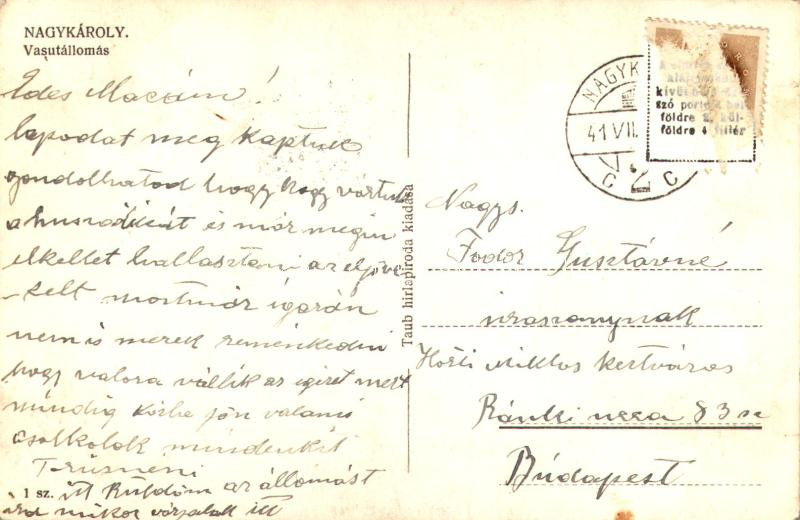 NAGYKÁROLY.
Vasutállomás
Edes Macám!
lapodat meg kaptuk
gondolhatod hogy hogy vártuk
a és már megin
elkellet hallasztani az eljöve
-telt mostmár igazán
nemis merek reménkedni
hogy valora vállik az igéret mert
mindig közbe jön valami
csolkolok mindenkit
1 sz. itt Küldöm az állomást
ird mikor várjalak itt
Taub hirlapiroda kiadása
NAGYK
41 VII.
C 2 C
földre 2, kül-
földre 4 fillér
Nagys.
Fodor Gusztávné
urasszonynak
Horti Miklos kertváros
Ránki ucca 83 sz
Búdapest